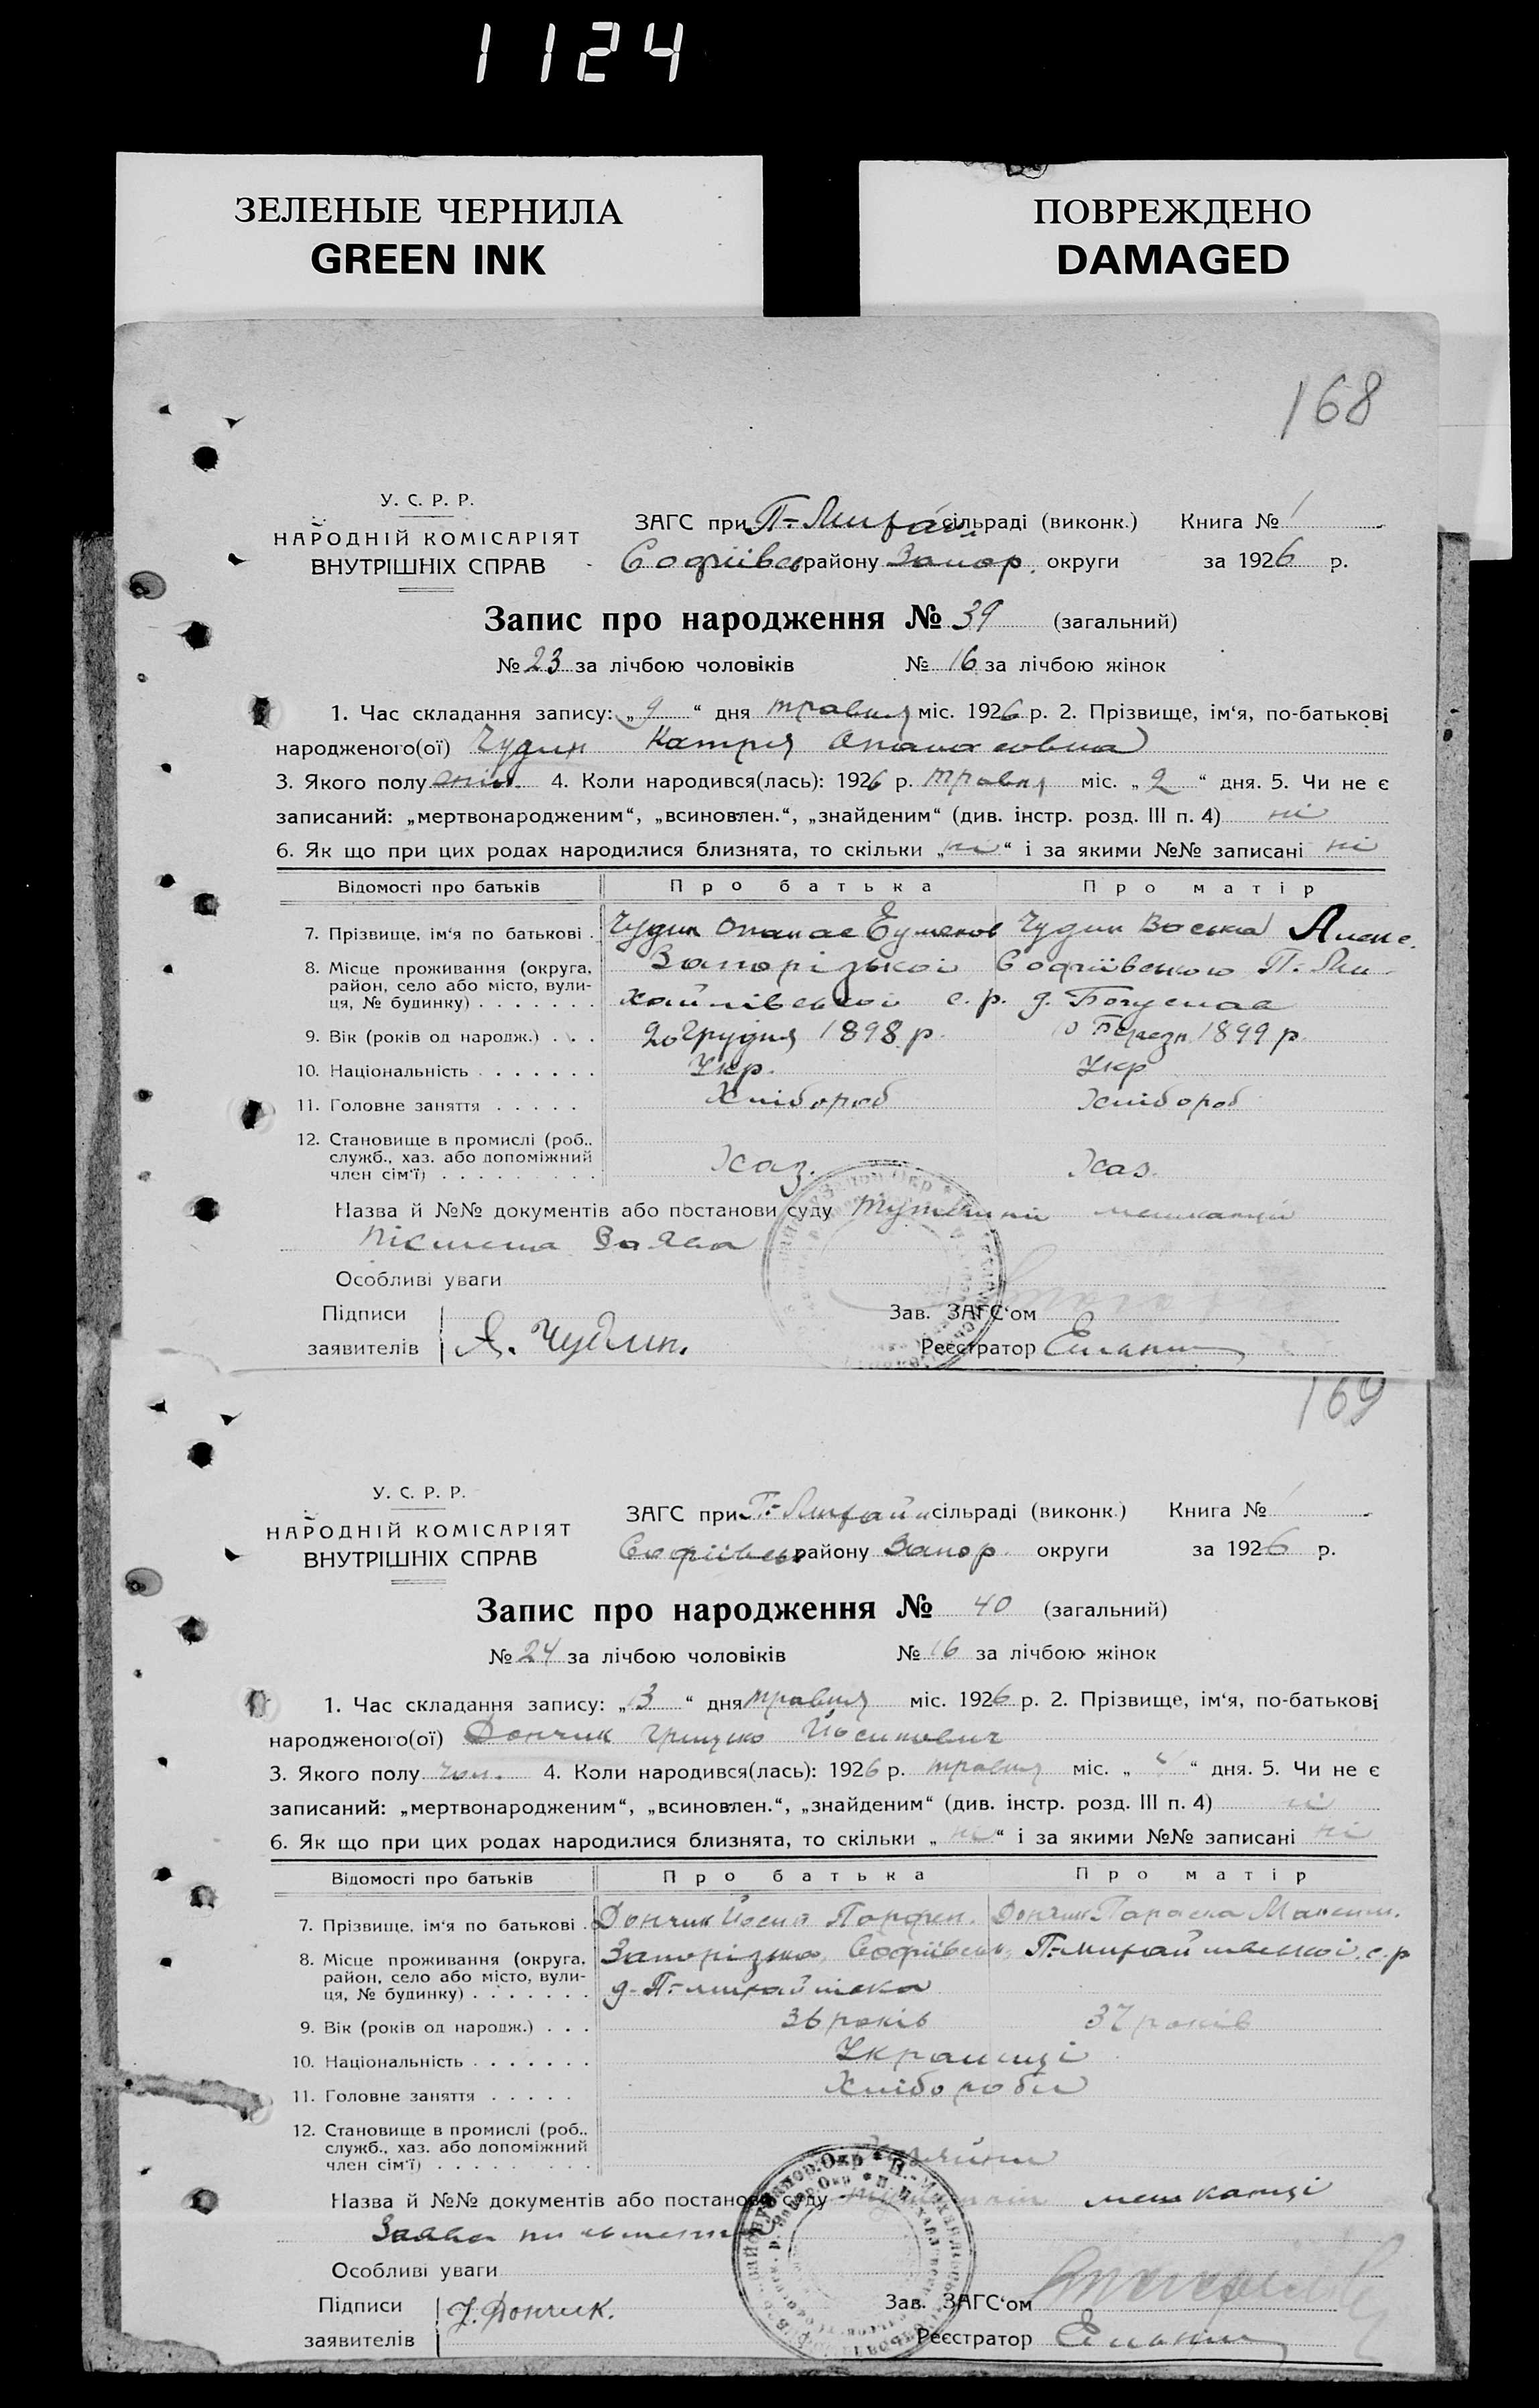 1124
ЗЕЛЕНЫЕ ЧЕРНИЛА
GREEN INK
ПОВРЕЖДЕНО
DAMAGED
168
У. С. Р. Р.
НАРОДНІЙ КОМІСАРІЯТ
ВНУТРІШНІХ СПРАВ
ЗАГС при сільраді (виконк.) Книга № 1
Софіївсь району Запор. округи за 1926 р.
Запис про народження № 39 (загальний)
№ 23 за лічбою чоловіків № 16 за лічбою жінок
1. Час складання запису: „9“ дня травня міс. 1926 р. 2. Прізвище, ім‘я, по-батькові
народженого(ої) Чудин Катря Опанасовна
3. Якого полу 4. Коли народився(лась): 1926 р. травня міс. „2“ дня. 5. Чи не є
записаний: „мертвонародженим“, „всиновлен.“, „знайденим“ (див. інстр. розд. III п. 4) ні
6. Як що при цих родах народилися близнята, то скільки „ні“ і за якими №№ записані ні
Відомості про батьків Про батька Про матір
7. Прізвище, ім‘я по батькові . Чудин Опанас Чудин
8. Місце проживання (округа, Запорізької Софіївського П. Ми-
район, село або місто, вули-
ця, № будинку) . . . . . . . хайлівської с. р. д.
9. Вік (років од народж.) . . . 20 Грудня 1898 р. 10 Березн 1899 р.
10. Національність . . . . . . . Укр. Укр
11. Головне заняття . . . . . Хлібороб Хлібороб
12. Становище в промислі (роб.,
служб., хаз. або допоміжний Хаз. Хаз.
член сім‘ї) . . . . . . . . .
Назва й №№ документів або постанови суду мешканці
Пісмена Заява
Особливі уваги
Підписи Зав. ЗАГС‘ом
заявителів А. Чудин. Реєстратор
169
У. С. Р. Р.
НАРОДНІЙ КОМІСАРІЯТ
ВНУТРІШНІХ СПРАВ
ЗАГС при П-Михайл сільраді (виконк.) Книга № 1
Софіївсь району Запор. округи за 1926 р.
Запис про народження № 40 (загальний)
№ 24 за лічбою чоловіків № 16 за лічбою жінок
1. Час складання запису: „13“ дня травня міс. 1926 р. 2. Прізвище, ім‘я, по-батькові
народженого(ої) Дончик Грицько Йосипович
3. Якого полу чол. 4. Коли народився(лась): 1926 р. травня міс. „ “ дня. 5. Чи не є
записаний: „мертвонародженим“, „всиновлен.“, „знайденим“ (див. інстр. розд. III п. 4) ні
6. Як що при цих родах народилися близнята, то скільки „ні“ і за якими №№ записані ні
Відомості про батьків Про батька Про матір
7. Прізвище, ім‘я по батькові . Дончик Йосип Парфен. Дончик Параска Максим.
8. Місце проживання (округа, Запорізька, Софіївськ, П-михайлівської с. р
район, село або місто, вули-
ця, № будинку) . . . . . . . д. П-михайлівка
9. Вік (років од народж.) . . . 36 років 37 років
10. Національність . . . . . . . Украинці
11. Головне заняття . . . . . Хлібороби
12. Становище в промислі (роб.,
служб., хаз. або допоміжний
член сім‘ї) . . . . . . . . .
Назва й №№ документів або постанови суду мешканці
Заява
Особливі уваги
Підписи Зав. ЗАГС‘ом
заявителів Дончик. Реєстратор